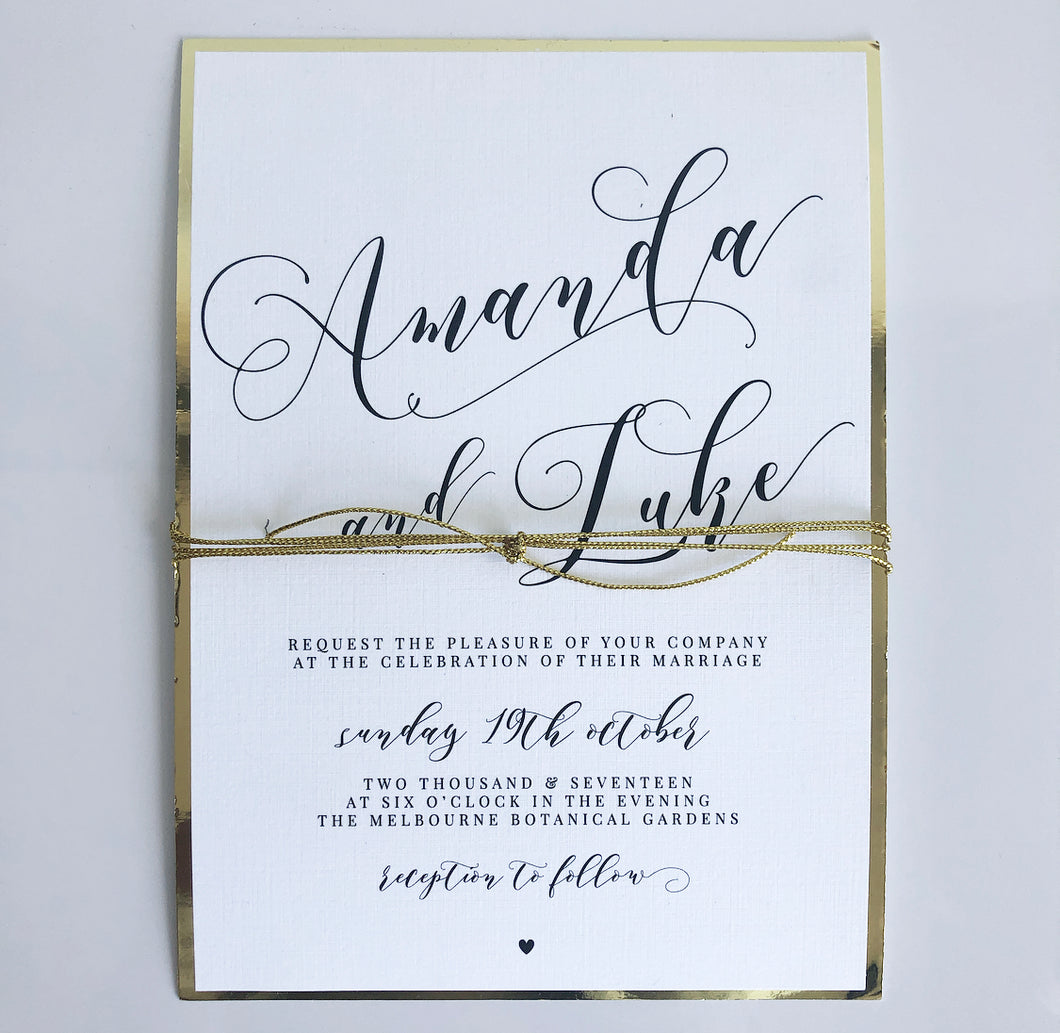 Amanda
and Luke
REQUEST THE PLEASURE OF YOUR COMPANY
AT THE CELEBRATION OF THEIR MARRIAGE
sunday 19th october
TWO THOUSAND & SEVENTEEN
AT SIX O'CLOCK IN THE EVENING
THE MELBOURNE BOTANICAL GARDENS
reception to follow